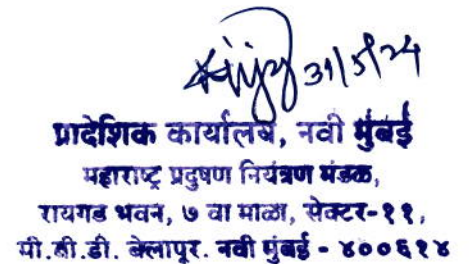 31/5/24
प्रादेशिक कार्यालय, नवी मुंबई
महाराष्ट्र प्रदुषण नियंत्रण मंडळ,
रायगड भवन, ७ वा माळा, सेक्टर-११,
सी.बी.डी. बेलापूर. नवी मुंबई - ४००६१४